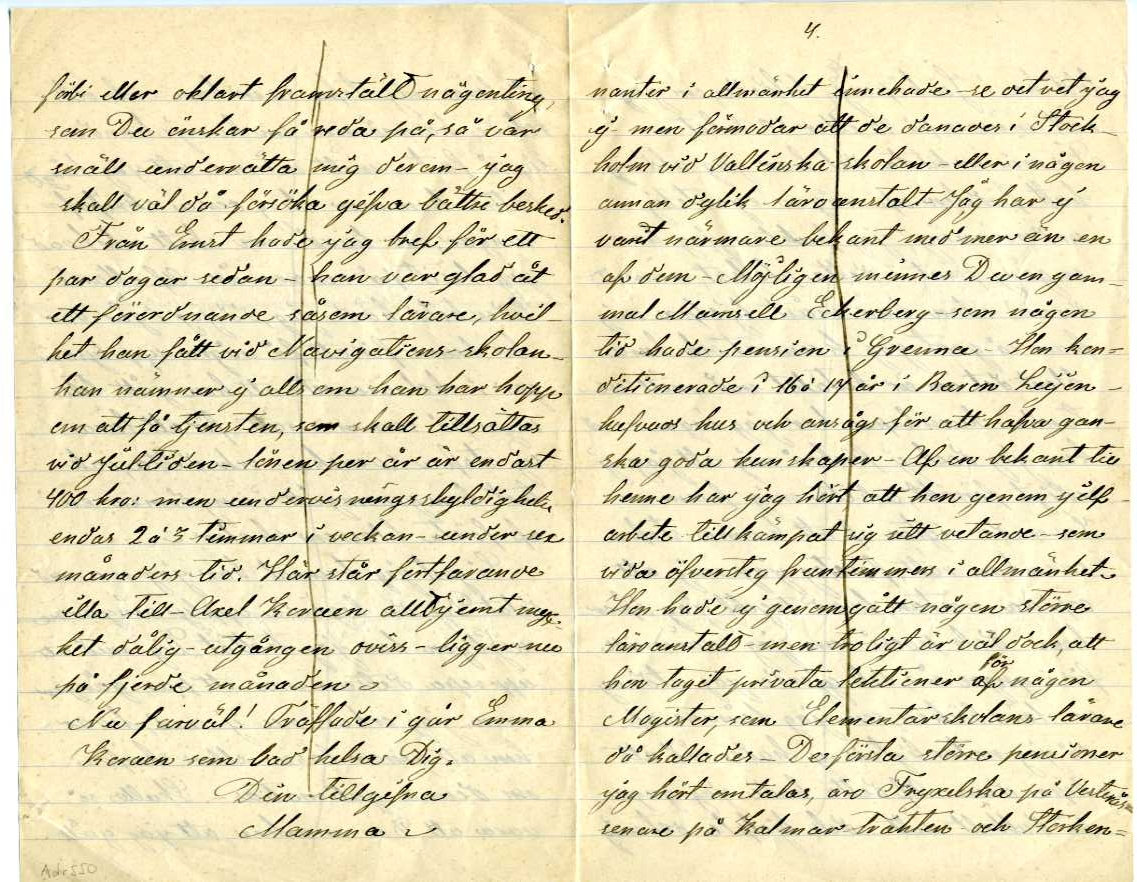 förbi eller oklart framstäld någonting,
som Du önskar få reda på, så var
snäll underrätta mig derom – jag
skall väl då försöka gifva bättre besked.
Från Ernst hade jag bref för ett
par dagar sedan – han var glad åt
ett förordnande såsom lärare, hvil-
ket han fått vid Navigations-skolan –
han nämner ej alls om han har hopp
om att få tjensten, som skall tillsättas
vid Jultiden – lönen per år är endast
400 kro: men undervisningsskyldighet
endas 2 à 3 timmar i veckan – under sex
månaders tid. Här står fortfarande
illa till – Axel Koraen alltjemt myc-
ket dålig – utgången oviss – ligger nu
på fjerde månaden
Nu farväl! Träffade i går Emma
Koraen som bad helsa Dig.
Din tillgifna
Mamma
Adr 550
4.
nantir i allmänhet innehade – se det vet jag
ej – men förmodar att de danades i Stock-
holm vid Vallinska skolan – eller i någon
annan dylik läroanstalt Jag har ej
varit närmare bekant med mer än en
af dem – Möjligen minnes Du en gam-
mal Mamsell Eckerberg – som någon
tid hade pension i Grenna – Hon kon=
ditionerade i 16 à 17 år i Baron Leijon-
hufvuds hus och ansågs för att hafva gan-
ska goda kunskaper – Af en bekant till
henne har jag hört att hon genom sjelf-
arbete tillkämpat sig sitt vetande – som
vida öfversteg fruntimmers i allmänhet.
Hon hade ej genomgått någon större
läroanstalt – men troligt är väl dock, att
hon tagit privata lektioner för af någon
Magister, som Elementarskolans lärare
då kallades – De första större pensioner
jag hört omtalas, äro Fryxelska på Vestra
senare på Kalmar trakten – och Storken=